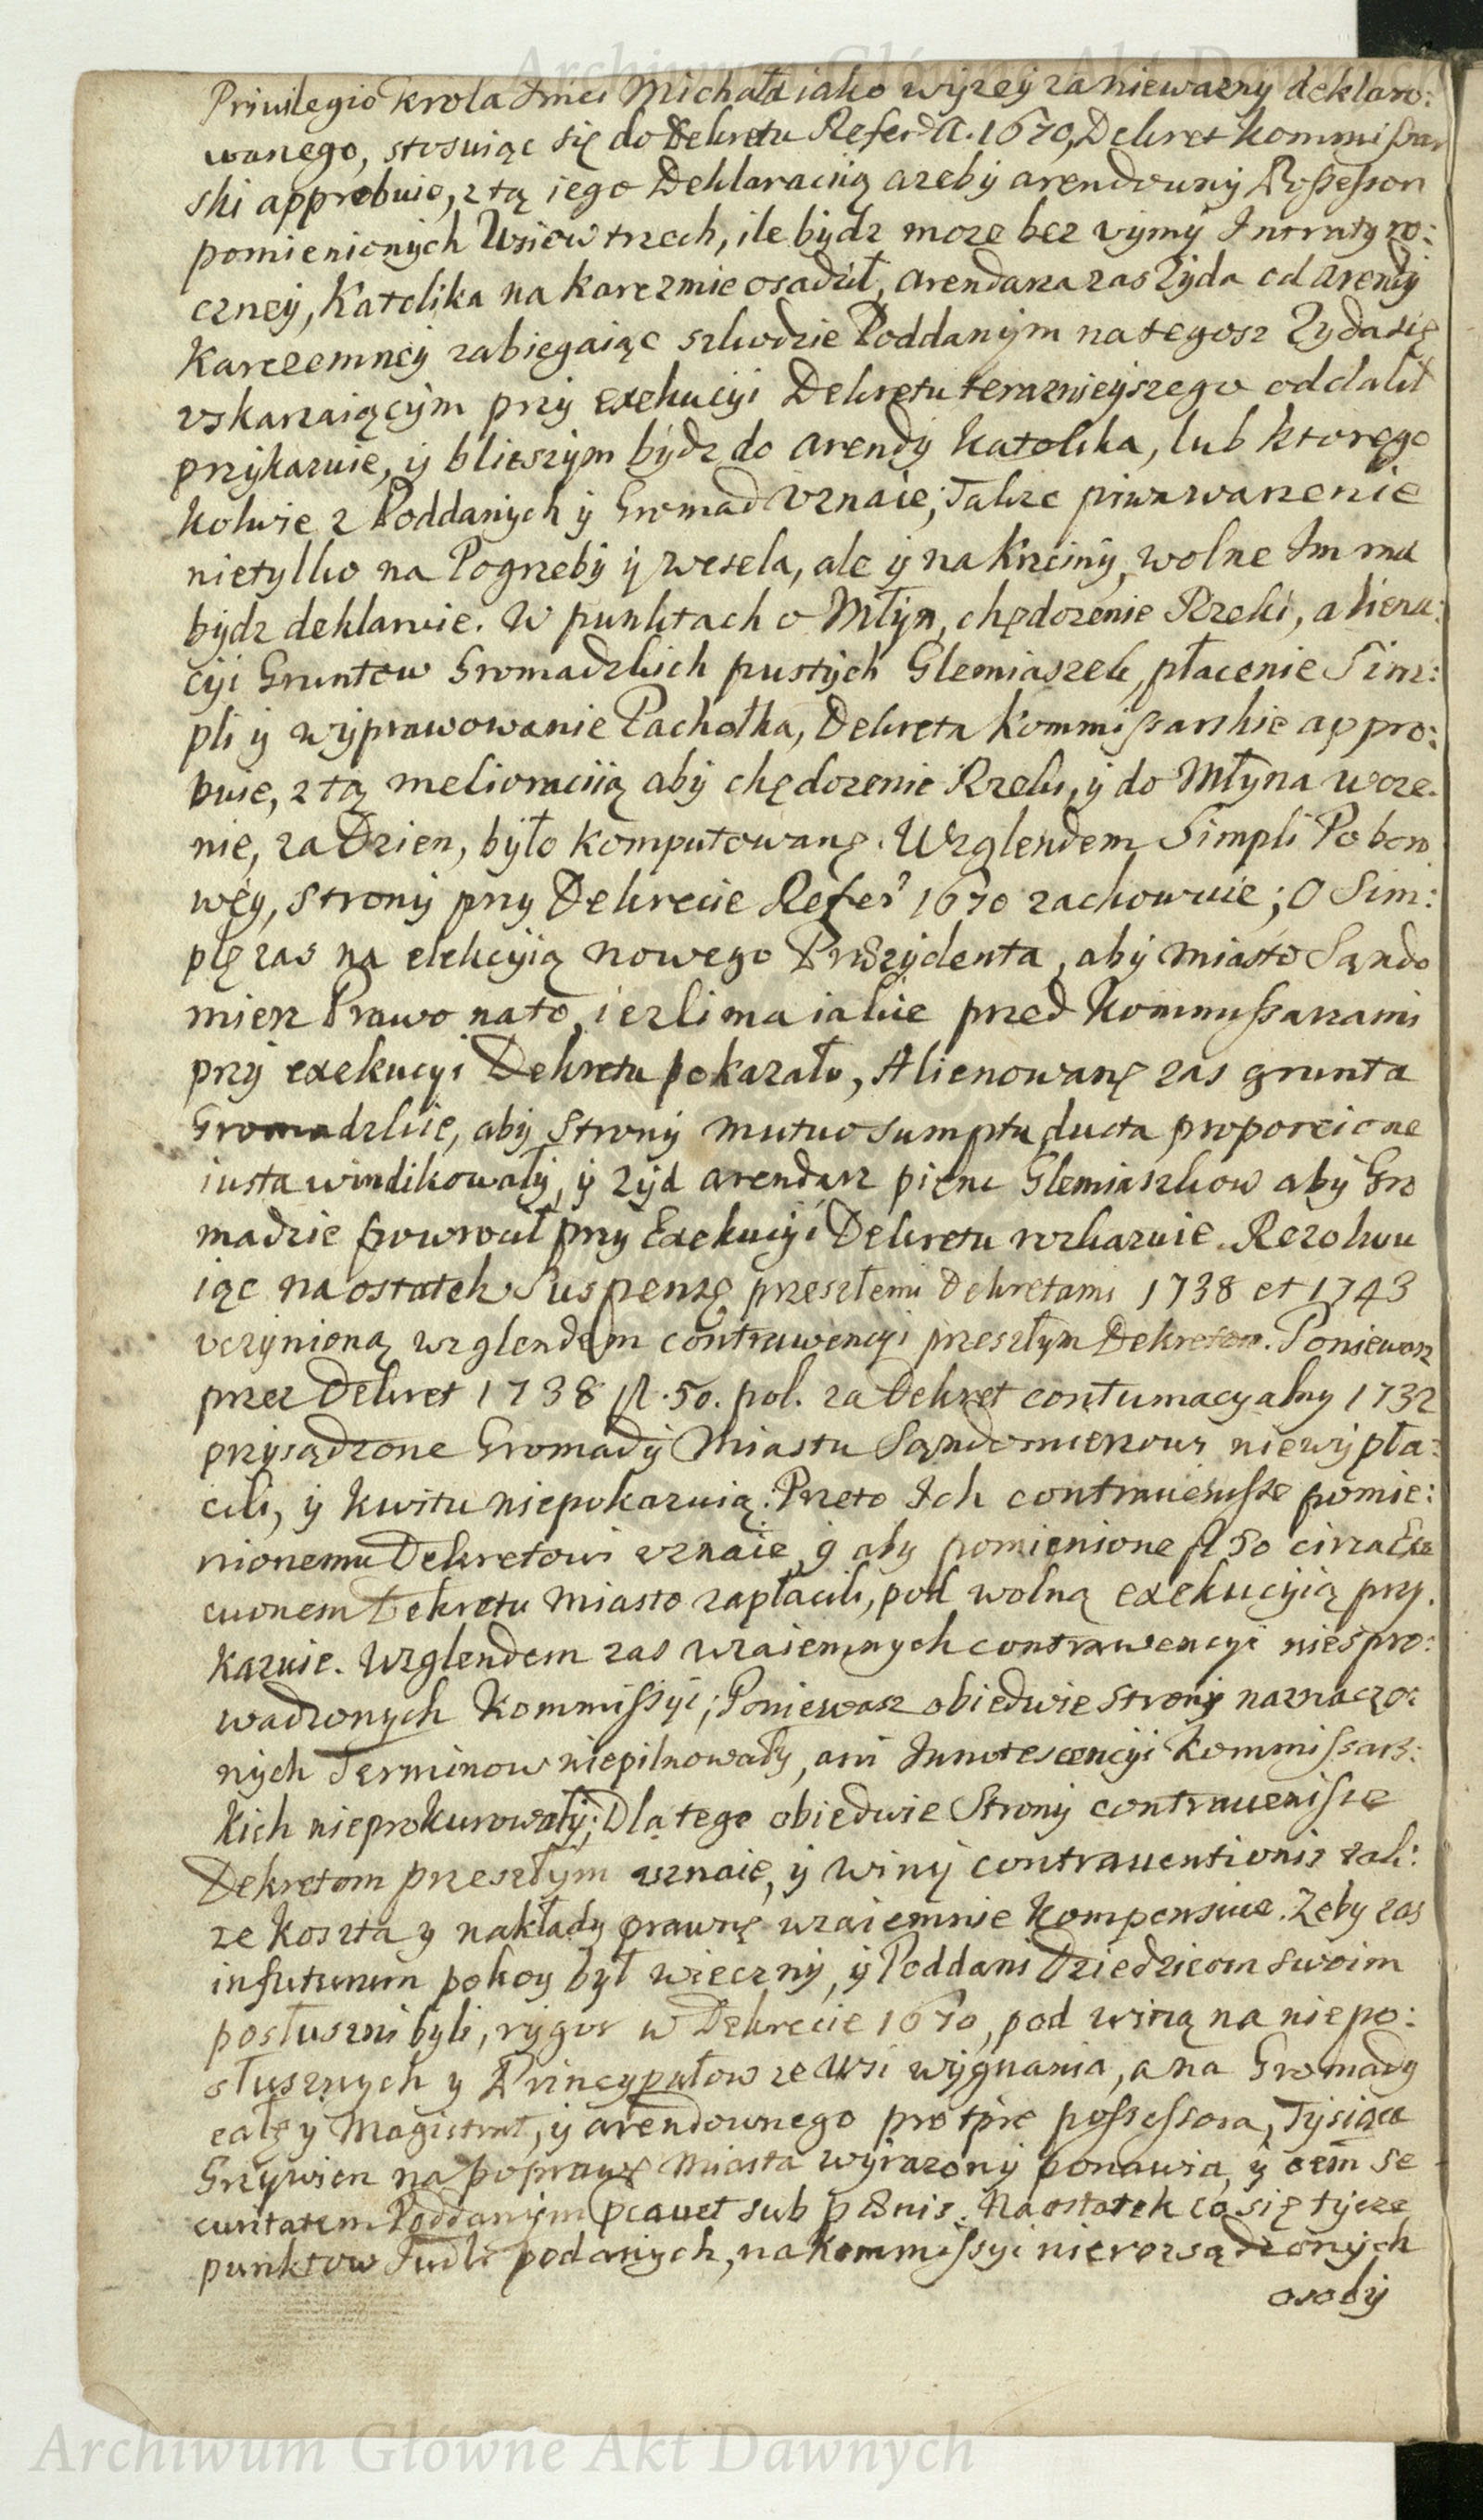 Privilegio Krola Jmci Michała iako wyzey za niewazny deklaro:
wanego, stosuiąc się do Dekretu Refer̃ A. 1670, Dekret Kommissar
ski approbuie, z tą iego Deklaraciią azeby arendowny Possessor
pomienionych Wsiow trzech, ile bydz moze bez vymy Intraty ro:
czney, Katolika na karczmie osadził, arendarza zas Zyda od arendy
Karczemney zabiegaiąc szkodzie Poddanym na tegosz Zyda się
vskarzaiącym przy exekucyi Dekretu teraznieyszego oddalil
przykazuie, y blieszym bydz do arendy Katolika, lub ktorego
kolwie z Poddanych y Gromad vznaie; Takze piwa warzenie
nietylko na Pogrzeby y wesela, ale y na krzciny, wolne Im ma
bydz deklaruie. W punktach o Młyn, chędozenie Rzeki, aliena:
cyi Gruntow Gromadzkich pustych Glemiaszek, płacenie Sim:
pli y wyprawowanie Pachołka, Dekreta Kommissarskie appro:
buie, z tą melioraciią aby chędozenie Rzeki, y do Młyna woze:
nie, za Dzien, było komputowanę. Wzglendem Simpli Pobor
wey, strony przy Dekrecie Refer̃ 1670 zachowuie; O Sim:
plę zas na elekcyią nowego Prezydenta, aby miasto Sąndo
mierz Prawo na to, iezli ma iakie przed Kommissarzami
przy exekucyi Dekretu pokazało, Alienowanę zas grunta
Gromadzkie, aby strony mutuo sumptu ducta proporcione
iusta windikowały, y zyd arendarz pięnc Glemiaszkow aby Gro
madzie powrocił przy Exekucyi Dekretu rozkazuie. Rezolwu
iąc na ostatek Suspenzę przeszłemi Dekretami 1738 et 1743
vczynioną wzglendem contrawencyi przeszłym Dekretom. Poniewasz
przez Dekret 1738 fl. 50. pol. za Dekret contumacyalny 1732
przysądzone Gromady Miastu Sąndomierzowi niewypła:
cili, y kwitu niepokazuią: Przeto Ich contrauenisse pomie:
nionemu Dekretowi vznaie, y aby pomienione fl 50 circa Exe
cuonem Dekretu Miasto zapłacili, pod wolną exekucyią przy.
kazuie. Wzglendem zas wzaiemnych contrawencyi niespro:
wadzonych Kommissyi; Poniewasz obiedwie strony naznaczo:
nych Terminow niepilnowały, ani Innotescencyi Kommissars:
kich nieprokurowały; Dla tego obiedwie Strony contrauenisse
Dekretom przeszłym vznaie, y winy contrauentionis tali:
ze koszta y nakłady prawnę wzaiemnie kompensuie. Zeby zas
in futurum pokoy był wieczny, y Poddani Dziedzicom swoim
posłuszni byli, rygor w Dekrecie 1670, pod winą na niepo:
słusznych y Pryncypałow ze wsi wygnania, a na Gromady
całę y Magistrat, y arendownego pro tpre possessora, Tysiąca
Grzywien na poprawę Miasta wyrazony ponawia, y oem̃ se
curitatem Poddanym pcauet sub pænis. Na ostatek co się tycze
punktow Judt̃ podanych, na Kommissyi nierozsądzonych
osoby
Archiwum Główne Akt Dawnych